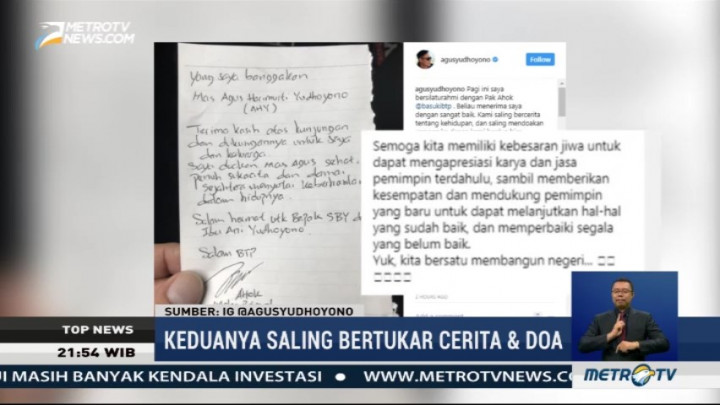 METROTV
NEWS.COM
Yang saya banggakan
Mas Agus Harimurti Yudhoyono
(AHY)
Terima kasih atas kunjungan
dan dukungannya untuk saya
dan keluarga.
Saya doakan Mas Agus sehat,
penuh sukacita dan damai
sejahtera menyertai
dalam hidupnya.
Salam hormat utk Bapak SBY
Ibu Ani Yudhoyono.
Salam BTP
Ahok
agusyudhoyono
Follow
agusyudhoyono Pagi ini saya
bersilaturahmi dengan Pak Ahok
@basukibtp. Beliau menerima saya
dengan sangat baik. Kami saling bercerita
tentang kehidupan, dan saling mendoakan
Semoga kita memiliki kebesaran jiwa untuk
dapat mengapresiasi karya dan jasa
pemimpin terdahulu, sambil memberikan
kesempatan dan mendukung pemimpin
yang baru untuk dapat melanjutkan hal-hal
yang sudah baik, dan memperbaiki segala
yang belum baik.
Yuk, kita bersatu membangun negeri...
2 HOURS AGO
SUMBER: IG @AGUSYUDHOYONO
TOP NEWS
KEDUANYA SALING BERTUKAR CERITA & DOA
21:54 WIB
UI MASIH BANYAK KENDALA INVESTASI • WWW.METROTVNEWS.CO
METROTV